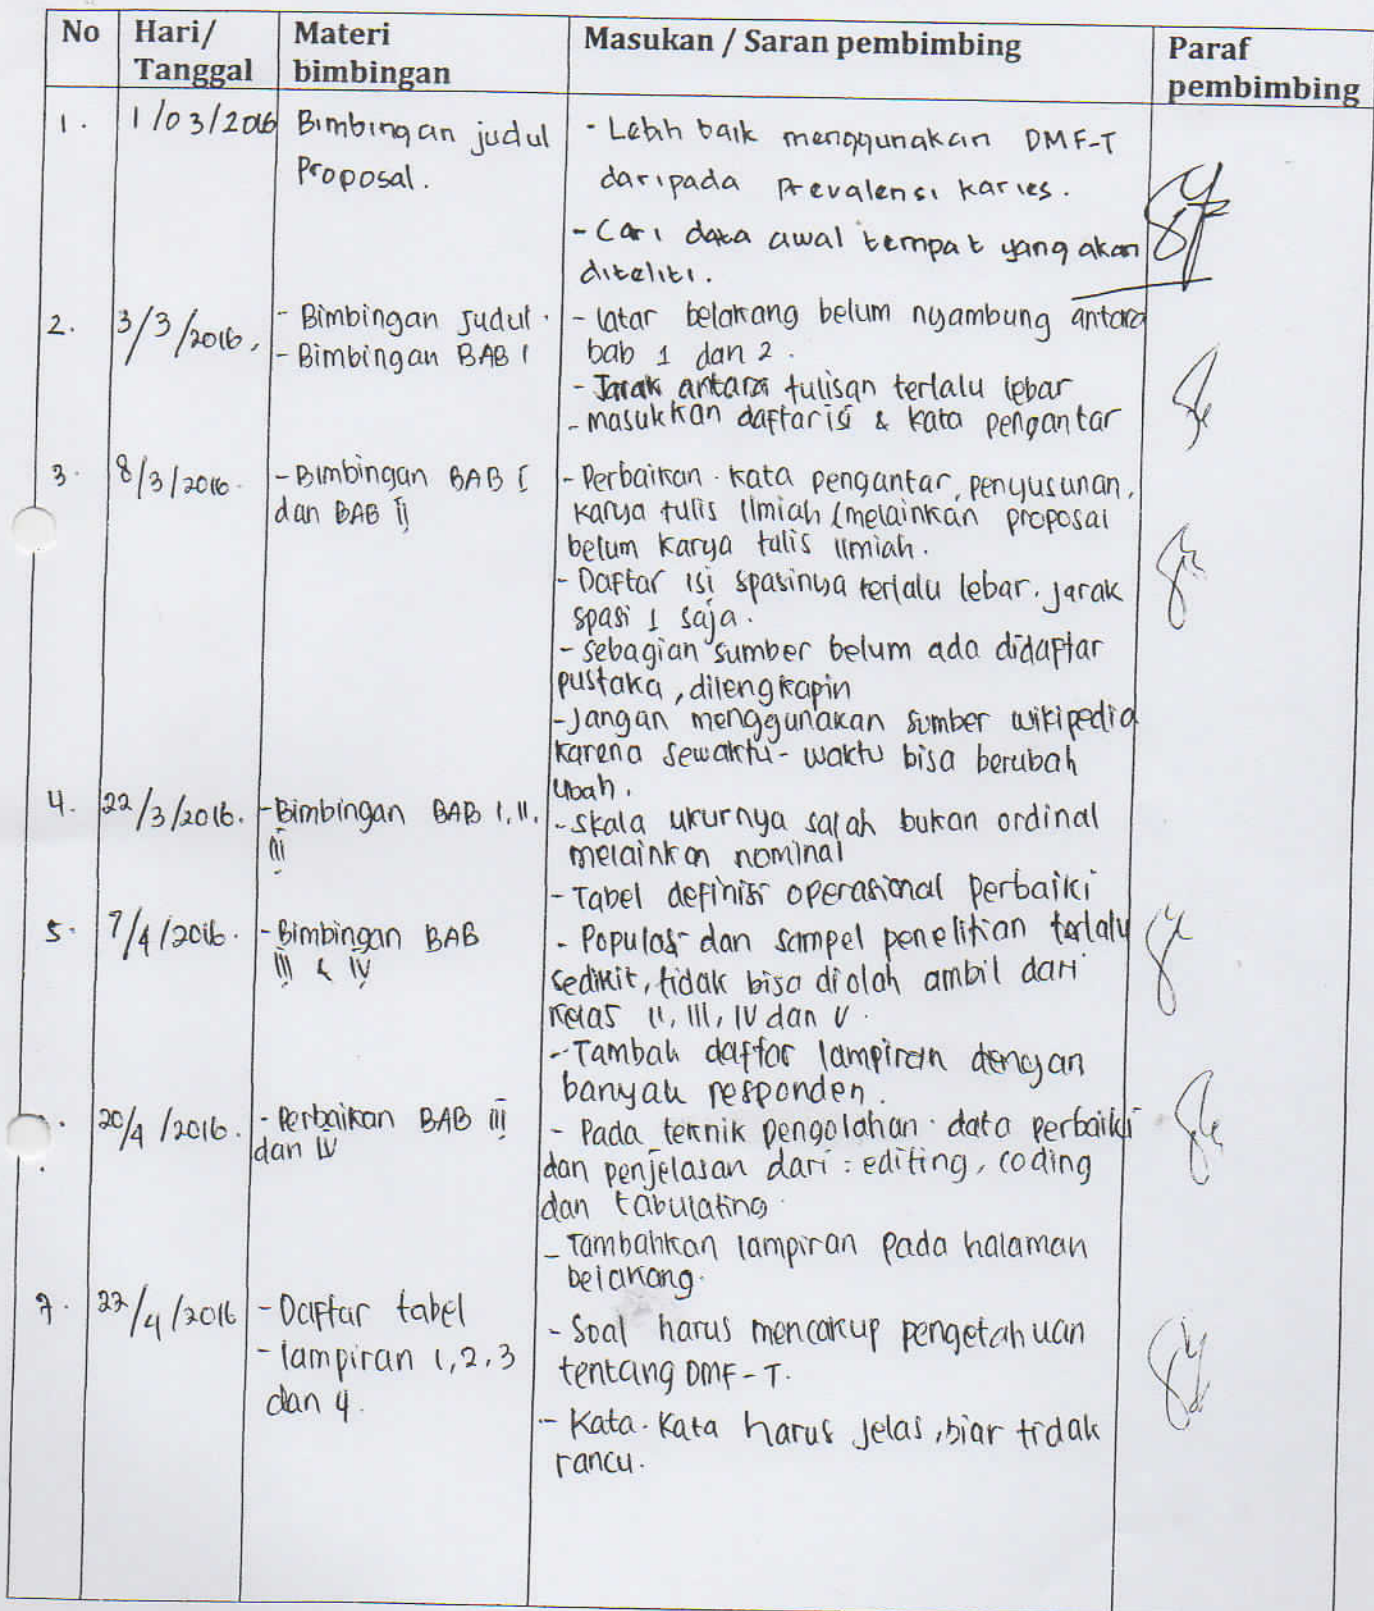 No Hari/ Tanggal Materi bimbingan Masukan / Saran pembimbing Paraf pembimbing
1. 1/03/2016 Bimbingan judul
Proposal.
- Lebih baik menggunakan DMF-T
daripada Prevalensi karies.
- Cari data awal tempat yang akan
diteliti.
2. 3/3/2016.
- Bimbingan Judul.
- Bimbingan BAB I
- latar belakang belum nyambung antara
bab 1 dan 2.
- Jarak antara tulisan terlalu lebar
- masukkan daftar isi & kata pengantar
3. 8/3/2016.
- Bimbingan BAB I
dan BAB II
- Perbaikan kata pengantar, penyusunan,
karya tulis Ilmiah (melainkan proposal
belum karya tulis Ilmiah.
- Daftar isi spasinya terlalu lebar. Jarak
spasi 1 saja.
- sebagian sumber belum ada didaftar
pustaka, dilengkapin
- Jangan menggunakan sumber wikipedia
karena sewaktu-waktu bisa berubah
ubah.
4. 22/3/2016.
- Bimbingan BAB I, II,
III
- skala ukurnya salah bukan ordinal
melainkan nominal
- Tabel definisi operasional perbaiki
5. 7/4/2016.
- Bimbingan BAB
III & IV
- Populasi dan sampel penelitian terlalu
sedikit, tidak bisa diolah ambil dari
kelas II, III, IV dan V.
- Tambah daftar lampiran dengan
banyak responden.
20/4/2016.
- Perbaikan BAB III
dan IV
- Pada teknik pengolahan data perbaiki
dan penjelasan dari : editing, coding
dan tabulating.
- Tambahkan lampiran pada halaman
belakang.
7. 22/4/2016
- Daftar tabel
- lampiran 1,2,3
dan 4.
- Soal harus mencakup pengetahuan
tentang DMF-T.
- Kata-Kata harus jelas, biar tidak
rancu.